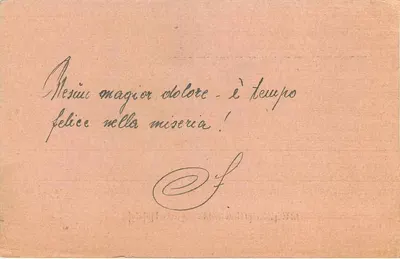 Nesún magior dolore - è tempo
felice nella miseria!
f